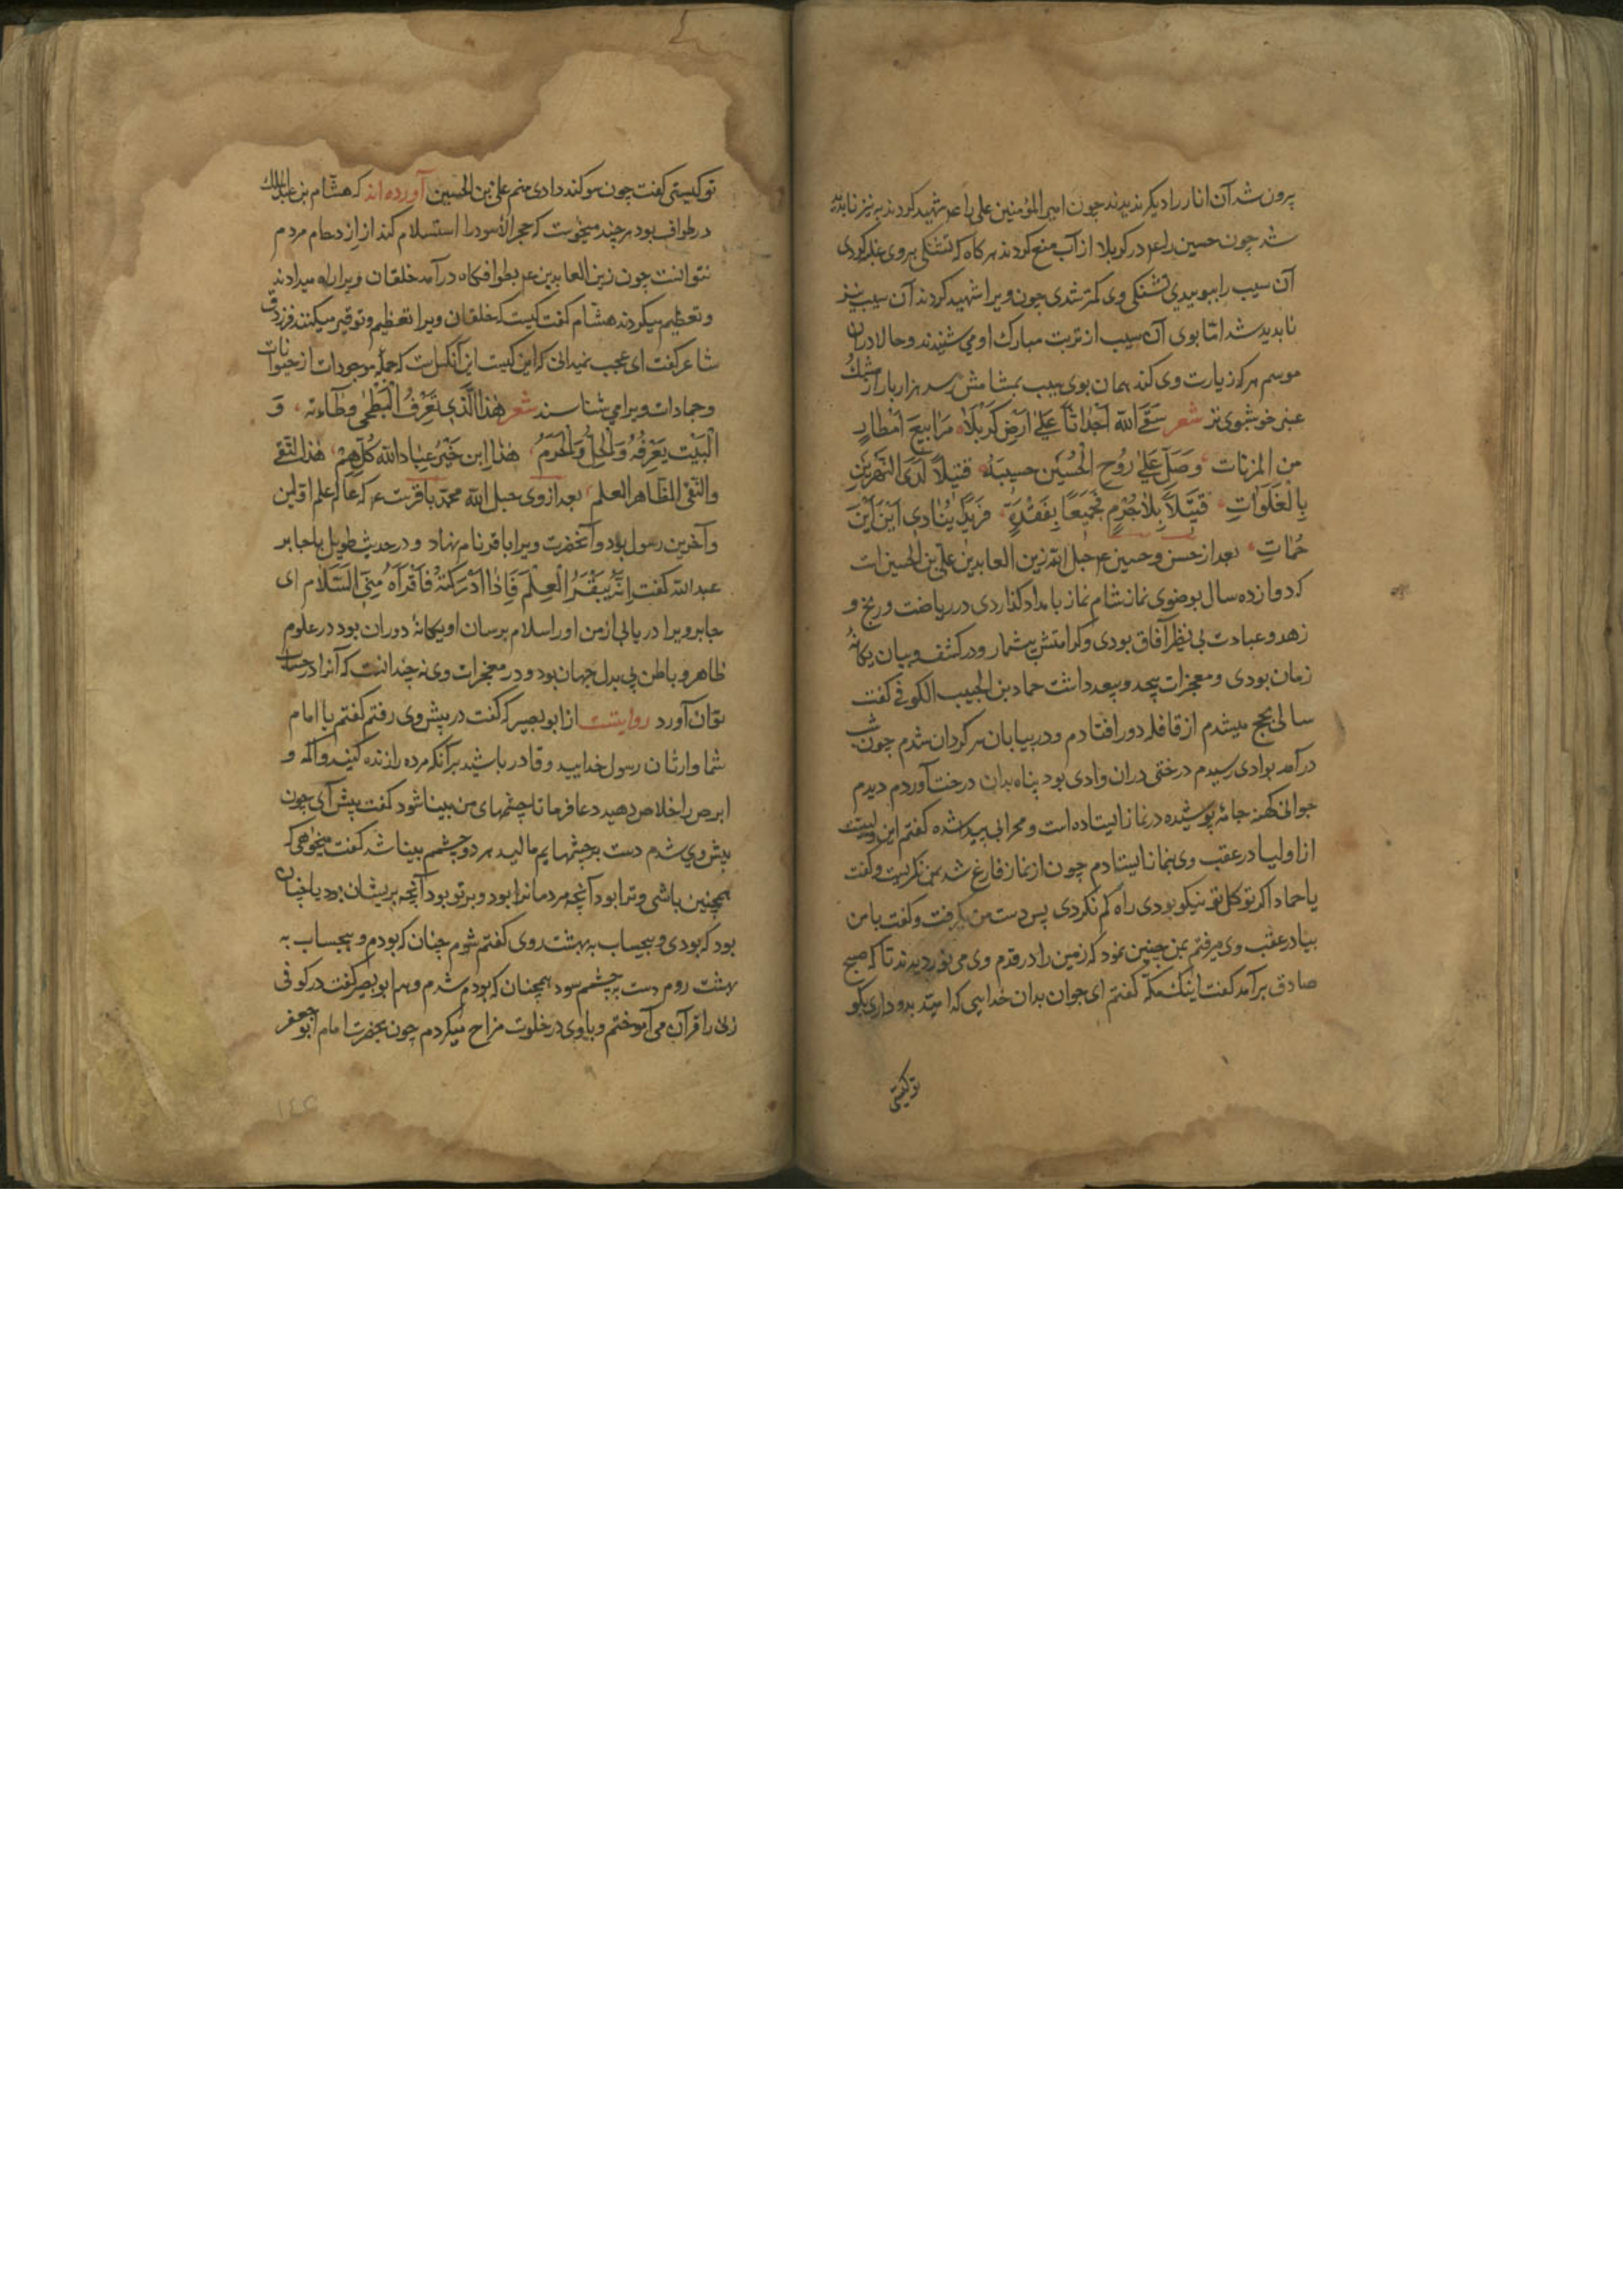 پرون شد آن انار را دیکر ندیدند چون امیر المؤمنین علی را عم شهید کردند به نیز نابدید
شد چون حسین را عم در کربلا از آب منع کردند هر کاه که تشنکی بر وی غلبه کردی
آن سیب را ببوییدی تشنکی وی کمتر شدی چون ویرا شهید کردند آن سیب نیز
نابدید شد اما بوی آن سیب از تربت مبارک او می شنیدند و حالا در آن
موسم هر که زیارت وی کند همان بوی سیب بمشامش رسد هزار بار از مشک
عنبر خوشبوی تر شعر سَقَی الله اَجْداثاً عَلی اَرْضِ کَرْبَلاَ مَرَابِیعَ اَمْطارٍ
مِنَ المزنات وَصَلِّ عَلیٰ رُوحِ الْحُسَیْن حسیبَهُ قَتیلاً لَدَی النَّهْرَیْنِ
بِالْفَلَوَاتِ قتیلاً بِلاٰ جُرْمٍ فَجیعاً بِفَقْدِهِ فَرِیْدً یُنادی اَیْنَ اَیْنَ
حُمَاتِ بعد از حسن و حسین عم حبل الله زین العابدین علی بن الحسین است
که دوازده سال بوضوی نماز شام نماز بامداد کذاردی در ریاضت و رنج و
زهد و عبادت بی نظیر آفاق بودی و کرامتش بیشمار و در کشف و بیان یکانهٔ
زمان بودی و معجزات بیحد و بیعد داشت حماد بن الحبیب الکوفی گفت
سالی بحج میشدم از قافله دور افتادم و در بیابان سرکردان شدم چون شب
درآمد بوادی رسیدم درختی در ان وادی بود پناه بدان درخت آوردم دیدم
جوانی کهنه جامهٔ پوشیده در نماز ایستاده است و محرابی پیدا شده کفتم این ولیست
از اولیا در عقب وی بنماز ایستادم چون از نماز فارغ شد بمن نکریست و گفت
یا حماد اکر توکل تو نیکو بودی راه کم نکردی پس دست من بکرفت و گفت با من
بیا در عقب وی میرفتم بمن چنین نمود که زمین را در قدم وی می نوردیدند تا که صبح
صادق برآمد گفت اینک مکه کفتم ای جوان بدان خدایی که امید بدو داری بکو
تو کیستی
تو کیستی گفت چون سوکند دادی منم علی بن الحسین آورده اند که هشام بن عبد الملک
در طواف بود هر چند میخواست که حجر الاسود را استسلام کند از ازدحام مردم
نتوانست چون زین العابدین عم بطوافکاه درآمد خلقان ویرا راه میدادند
و تعظیم میکردند هشام گفت کیست که خلقان ویرا تعظیم و توقیر میکنند فرزدق
شاعر گفت ای عجب نمیدانی که این کیست این آنکس است که جمله موجودات از حیوانات
و جمادات ویرا می شناسند شعر هٰذا الَّذی تَعْرِفُ الْبَطْحٰی وطاءته وَ
الْبَیْت یَعْرِفُهُ وَالْحِلُّ وَالْحَرَمُ هٰذا اِبن خَیْرِ عِبادِ الله کُلِّهِمْ هٰذا التَّقی
والنَّقی الطّاهر العلم بعد از وی حبل الله محمد باقرست عم که عالم علم اوّلین
و آخرین رسول بود و آنحضرت ویرا باقر نام نهاد و در حدیث طویل با جابر
عبد الله گفت اِنَّهُ یَبْقَرُ الْعِلْمَ فَاِذا اَدْرَکْتَهُ فَاَقْرَاهُ مِنّی السَّلَام ای
جابر ویرا دریابی از من او را سلام برسان او یکانهٔ دوران بود در علوم
ظاهر و باطن بی بدل جهان بود و در معجزات وی نه چندانست که آنرا در حساب
توان آورد روایتست از ابو بصیر که گفت در پیش وی رفتم گفتم یا امام
شما وارثان رسول خدایید و قادر باشید بر آنکه مرده را زنده کنید و اکمه و
ابرص را خلاص دهید دعا فرما تا چشمهای من بینا شود گفت پیش آی چون
پیش وی شدم دست بر چشمهایم مالید هر دو چشمم بینا شد گفت میخواهی که
همچنین باشی و ترا بود آنچه مردمانرا بود و بر تو بود آنچه بریشان بود یا چنان
بود که بودی و بیحساب به بهشت روی گفتم شوم چنان که بودم و بیحساب به
بهشت روم دست بر چشمم سود همچنان که بودم شدم و هم ابو بصیر گفت در کوفی
زنی را قرآن می آموختم و با وی در خلوت مزاح میکردم چون بحضرت امام ابو جعفر